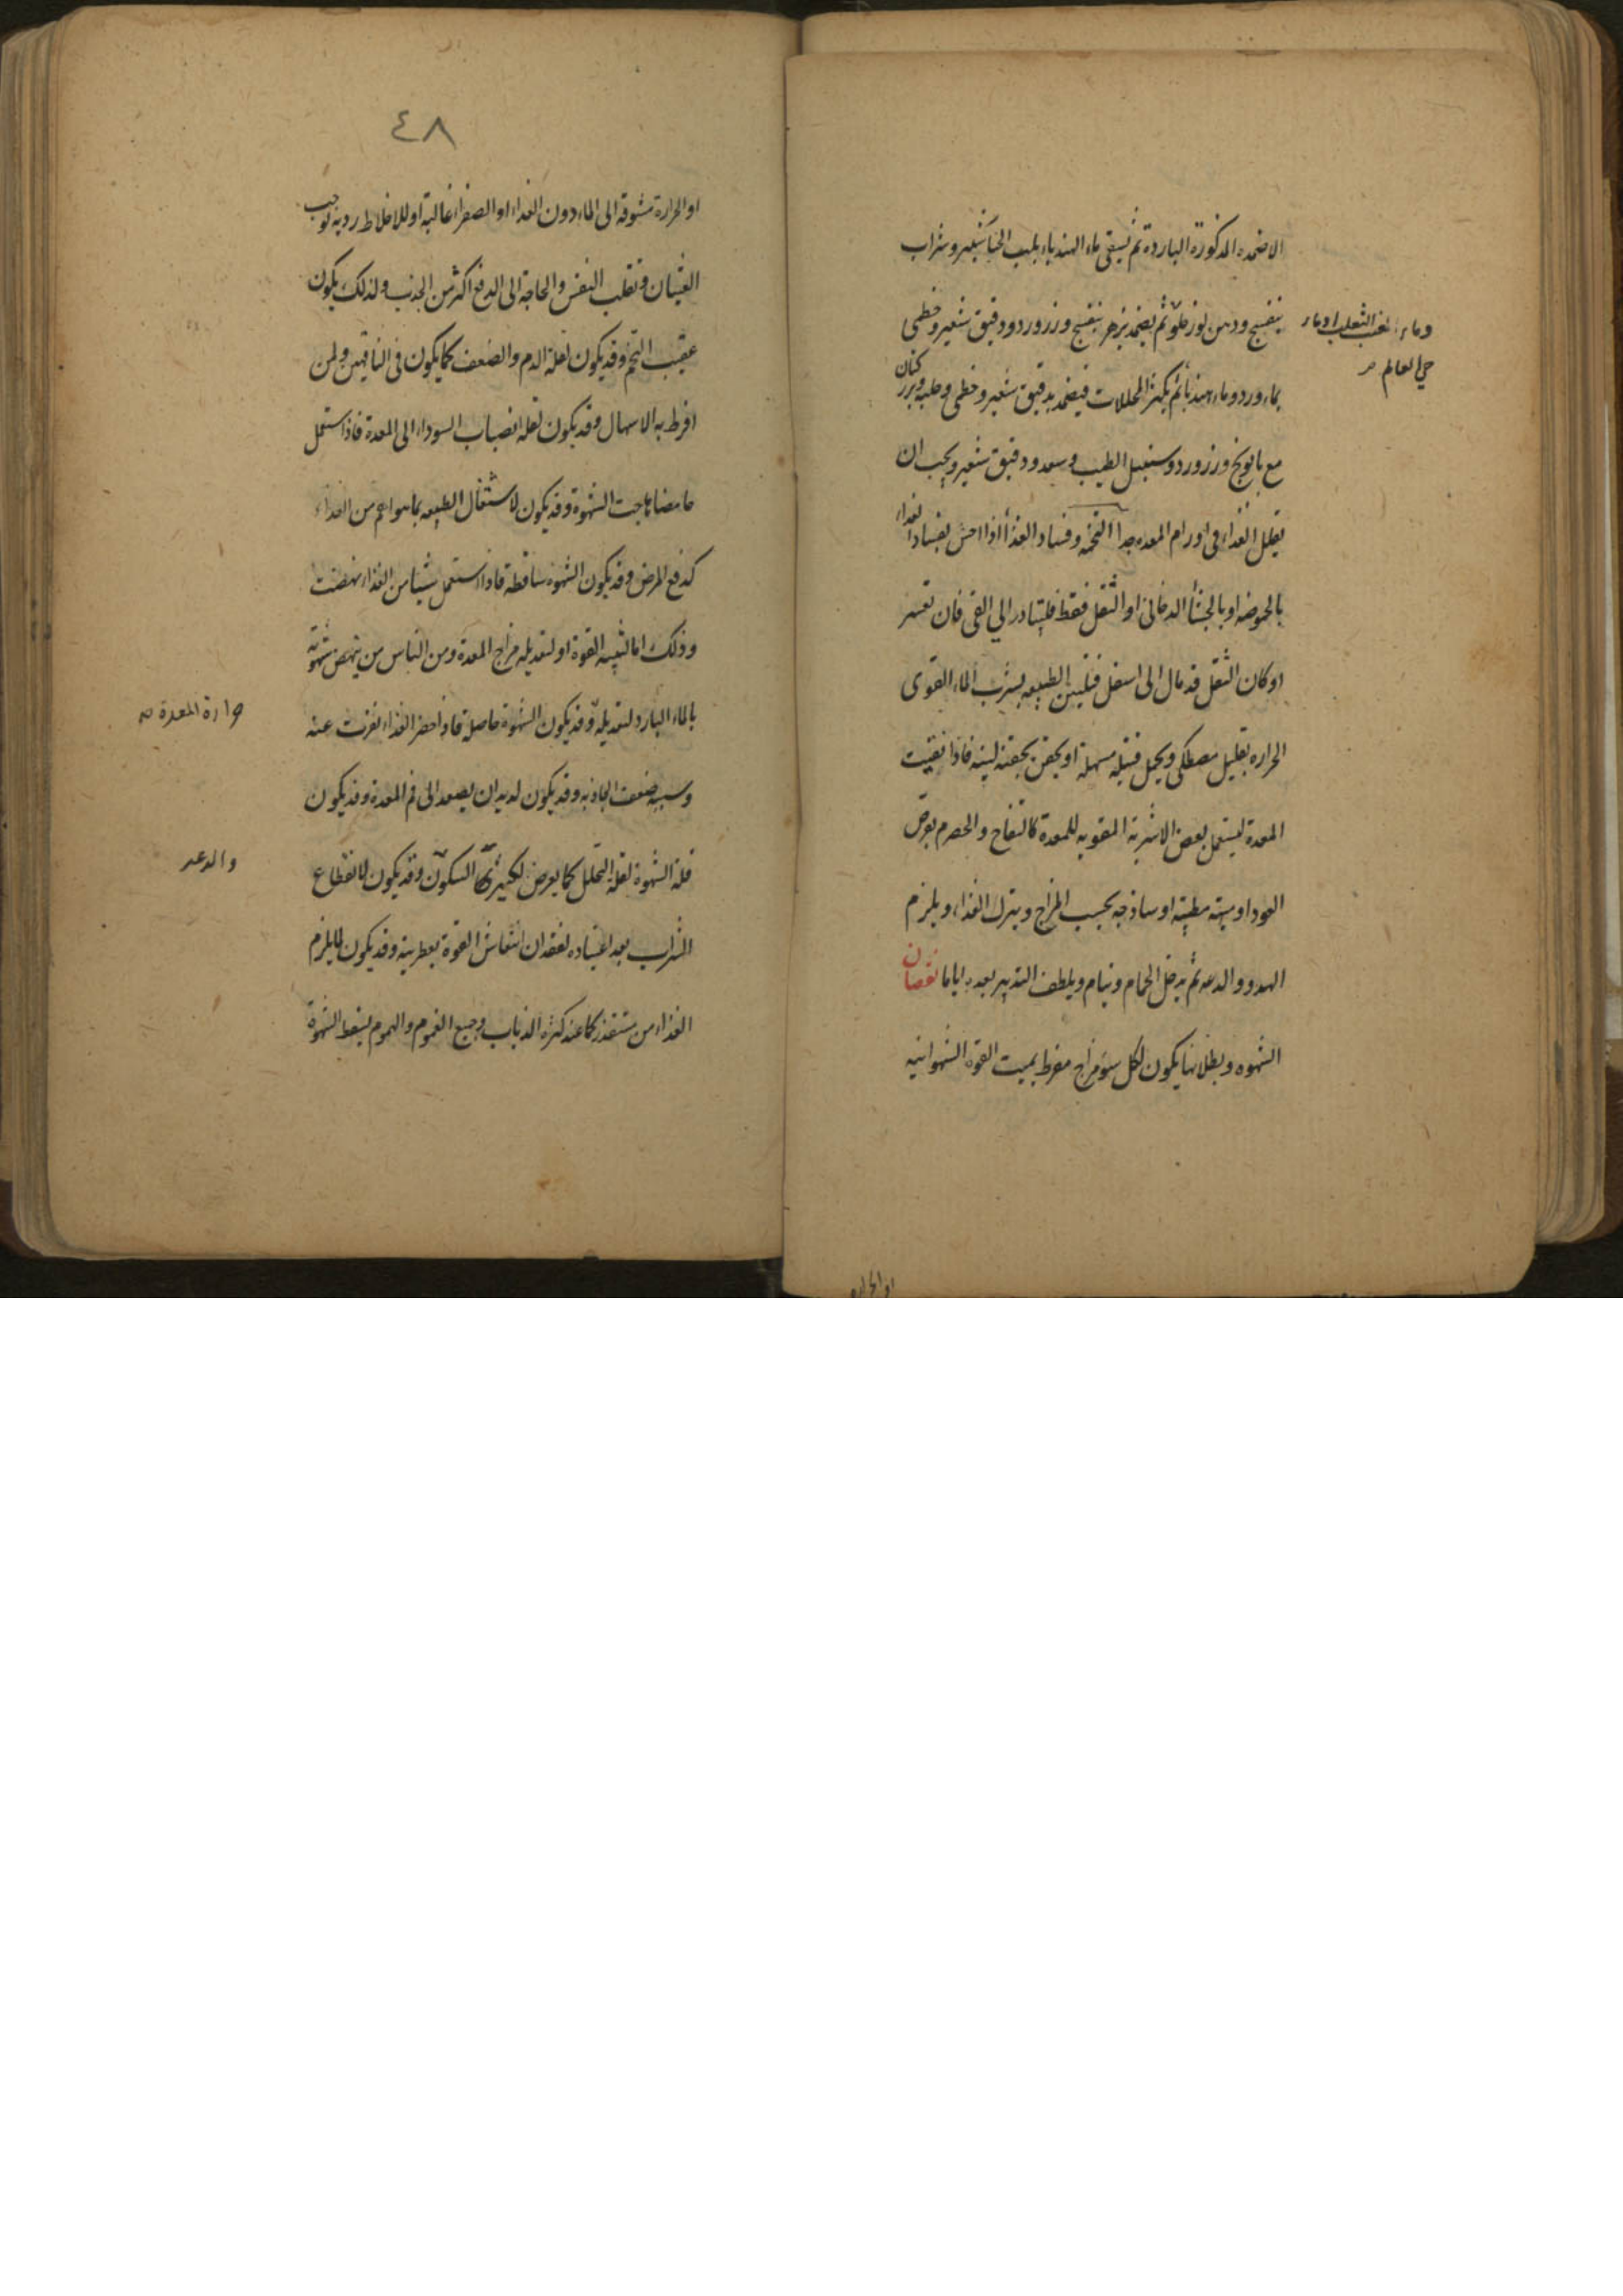 الاضمده المذكورة الباردة ثم يسقى ماء الهندباء بلب الخيار شنبر وشراب
بنفسج ودهن لوز حلو ثم يضمد بزهر بنفسج وزر ورد ودقيق شعير وخطمى
وماء عنب الثعلب او ماء
حي العالم
بماء ورد وماء هندبا ثم يكثر المحللات فيضمد بدقيق شعير وخطمى وحلبه وبزر كتان
مع بابونج وزر ورد وسنبل الطيب وسعد ودقيق شعير ويجب ان
يقلل الغذاء فى اورام المعده جدا التخمه وفساد الغذا اذا احس بفساد الغداء
بالحموضه او بالجشأ الدخانى او الثقل فقط فليتبادر الي القى فان تعسر
او كان الثقل قد مال الى اسفل فتليين الطبيعه بشرب الماء القوى
الحراره بقليل مصطكى ويحمل فتيله مسهلة او يحقن بحقنه لينه فاذا نقيت
المعدة ليستعمل بعض الاشربة المقويه للمعدة كالتفاح والحصرم بقرص
العود او ميبه مطيبه او ساذجه بحسب المزاج ويترك الغذاء ويلزم
الهدو والدعه ثم يدخل الحمام وينام ويلطف التدبير بعده اياما نقصان
الشهوه وبطلانها يكون لكل سؤ مزاج مفرط يميت القوة الشهوانيه
او الحراره
٤٨
او الحرارة مشوقه الى الماء دون الغداء او الصفراء غالبة او للاخلاط رديه توجب
الغثيان وتقلب النفس والحاجة الى الدفع اكثر من الجذب ولذلك يكون
عقيب التخم وقد يكون لقلة الدم والضعف كما يكون فى الناقهين ولمن
افرط به الاسهال وقد يكون لقله انصباب السوداء الى المعدة فاذا استعمل
حامضا هاجت الشهوة وقد يكون لاشتغال الطبيعه بما هو اهم من الغداء
كدفع المرض وقد يكون الشهوه ساقطه فاذا استعمل شيئا من الغذاء نهضت
وذلك اما لتنبيه القوة او لتعديله مزاج المعدة ومن الناس من ينهض شهوته
بالماء البارد لتعديله وقد يكون الشهوة حاصله فاذا حضر الغذاء نفرت عنه
حرارة المعدة
وسببه ضعف الجاذبه وقد يكون لديدان يصعد الى فم المعدة وقد يكون
قلة الشهوة لقلة التحلل كما يعرض لكثيرى السكون وقد يكون لانقطاع
والدعه
الشراب بعد اعتياده لفقدان انتعاش القوة بعطريته وقد يكون لما يلزم
الغذاء من مستقذر كما عند كثرة الذباب وجميع الغموم والهموم يسقط الشهوة